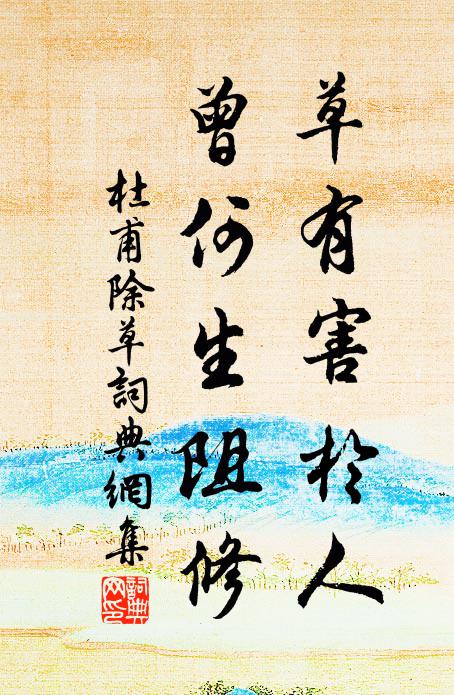 草有害於人
曾何生阻修
杜甫除草詞典網集
詞典網印